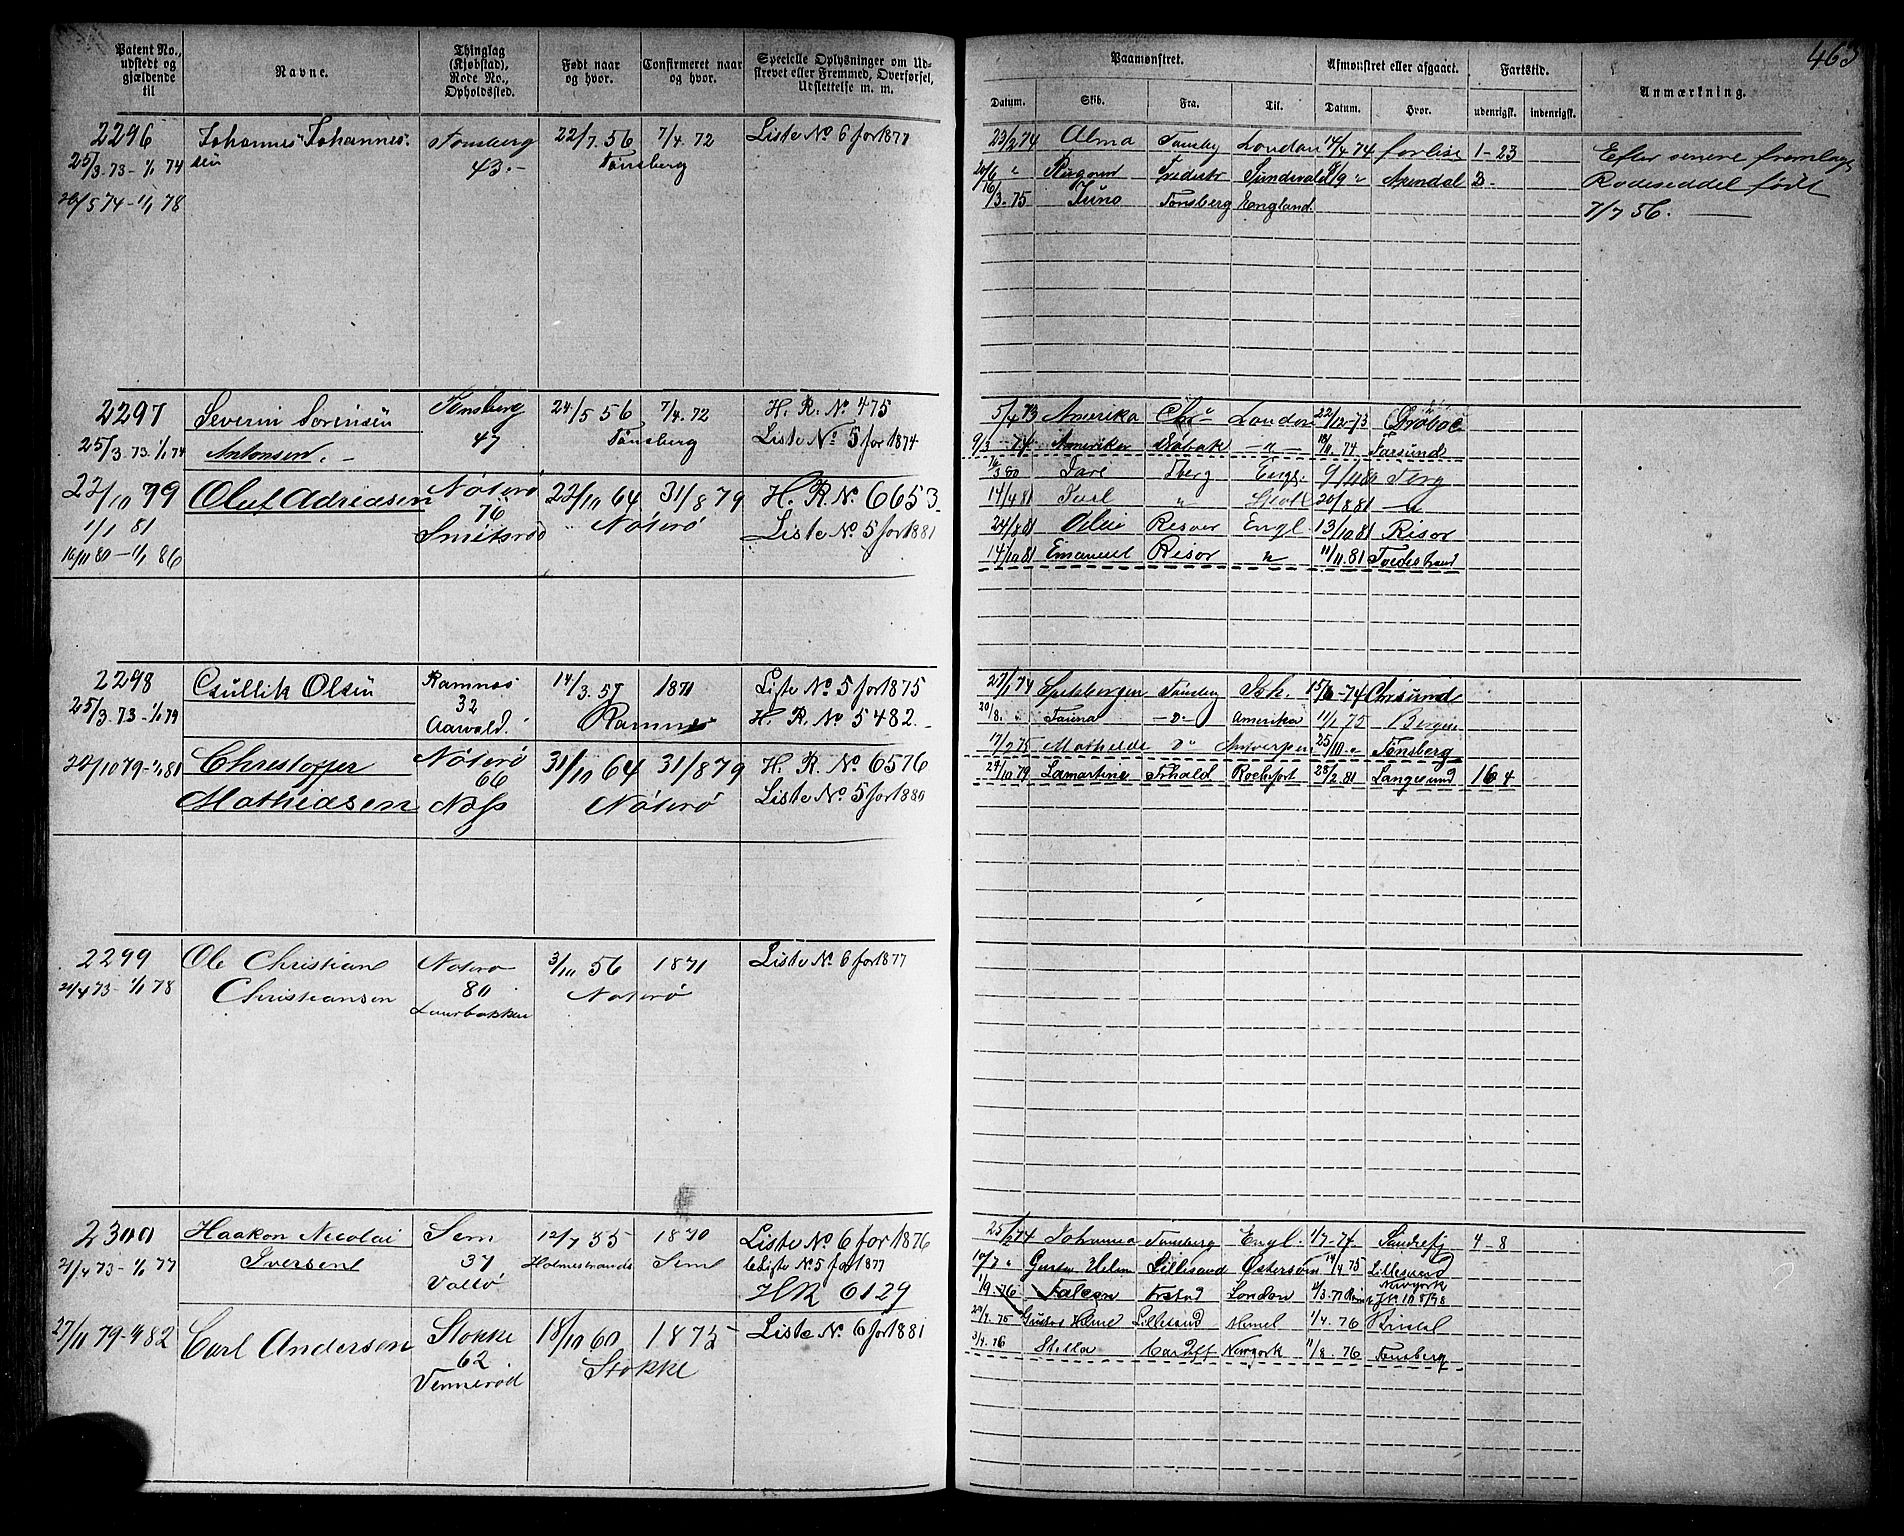 463
Patent No., udstedt og gjældende til
Navne.
Thinglag (Kjøbstad), Rode No., Opholdssted.
Født naar og hvor.
Confirmeret naar og hvor.
Specielle Oplysninger om Udstrevet eller Fremmed, Overførsel, Udslettelse m. m.
Paamønstret.
Afmønstret eller afgaaet.
Fartstid.
Anmærkning.
Datum. Skib. Fra. Til. Datum. Hvor. udenrigsk. indenrigsk.
2296 Johannes Johannes- Tønsberg 22/7. 56 7/4. 72 Liste No 6 for 1877
25/3. 73 - 1/1 74 sen 43.- Tønsberg
26/5 74 - 1/1 78
23/2 74 Alma Tønsby London 14/4 74 forlist 1-23
20/6 " Fredstr Sundsvald 2/9 " Arendal 3-
16/3. 75 Juno Tønsberg England.
Efter senere fremlagt
Rodeseddel født
7/7 56.
2297 Severin Sørensen Tønsberg 24/5 56 7/4. 72 H. R. No 475
25/3. 73. 1/1 74 Antonsen. - 47 Tønsberg Liste No 5 for 1874
22/10 79 Oluf Adriasen Nøterø 22/10 64 31/8 79 H. R. No 6653
1/1 81 76 Nøterø Liste No 5 for 1881
16/11 80 - 1/1 86 Smidsrød
5/4 73 Amerika Chr" London 22/12-73 Drøbac
9/3 - 74 Amerika Drøbak - " - 18/11. 74 Farsund
16/3 80 Jarl Tberg Engl. 9/11 80 Tberg
14/4 81 Jarl " 20/8 81 - "
24/8 81 Risøer Engl 13/10 81 Risør
14/10 81 Emanuel Risør " 11/11. 81 Tvedestrand
2298 Gullik Olsen Ramnes 14/3. 57 1871 Liste No 5 for 1875
25/3. 73 - 1/1 79 32 Ramnes H. R. No 5482.
Aarvold.
22/10 79 - 1/1 81 Christoffer Nøterø 31/10 64 31/8 79 H. R. No 6576
Mathiasen 66 Nøterø Liste No 5 for 1880
Næss
27/1 74 Spetsbergen Tønsberg Ish. 15/8 - 74 Chrsund
20/8. " Fauna - " - Amerika 11/1 75 Bergen
17/2 75 Mathilde " Antverpen 25/10. " Tønsberg
24/10 79 Lamartine Frhald Rochfort 28/2. 81 Langesund 16 4
2299 Ole Christian Nøterø 3/11 56 1871 Liste No 6 for 1877
21/4 73 - 1/1 78 Christiansen 80 Nøterø
Laurbakken
2300 Haakon Nicolai Sem 12/7 55 1870 Liste No 6 for 1876
21/4 73 - 1/1 77 Iversen 37 Holmestrand Sem Liste No 5 for 1877
Valløe HR 6129
27/11 79 - 1/1 82 Carl Andersen Stokke 18/10 60 1875 Liste No 6 for 1881
62 Stokke
Vennerød
25/2 74 Johanna Tønsberg Engl. 1/7 - 74 Sandefj 4-8
10/7 " Gustav Helm Lillesand Østersøen 14/4 75 Lillesand
1/9. 76 Falcon Frstad London 1/3. 77 Newyork
29/4. 75 Gustav Helm Lillesand Memel 1/4. 76
3/4. 76 Stella Cardiff Newyork 11/8. 76 Tønsberg